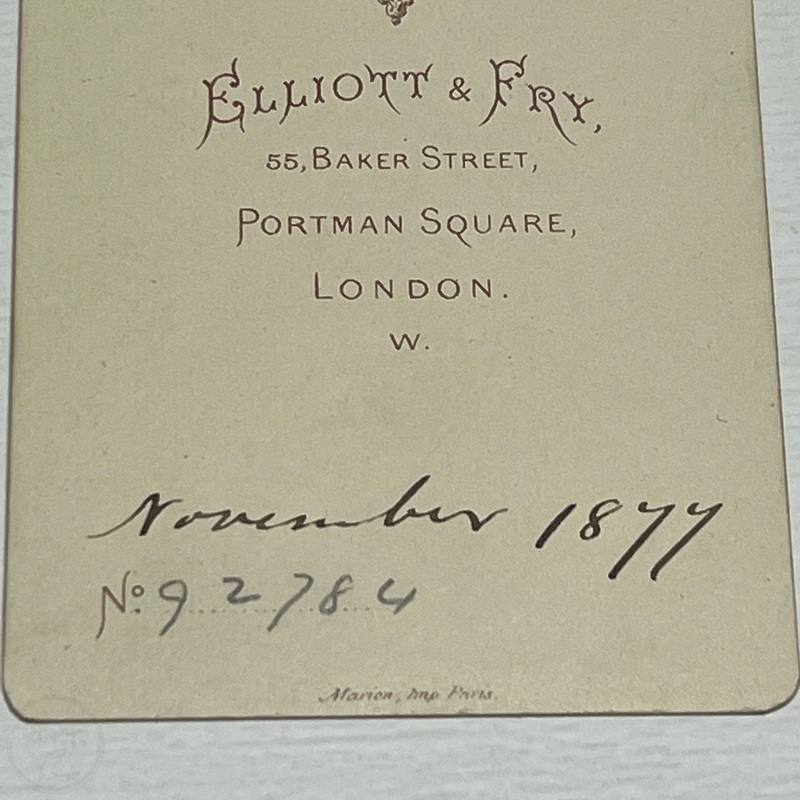 ELLIOTT & FRY,
55, BAKER STREET,
PORTMAN SQUARE,
LONDON.
W.
November 1877
No. 92784
Marion, Imp Paris.